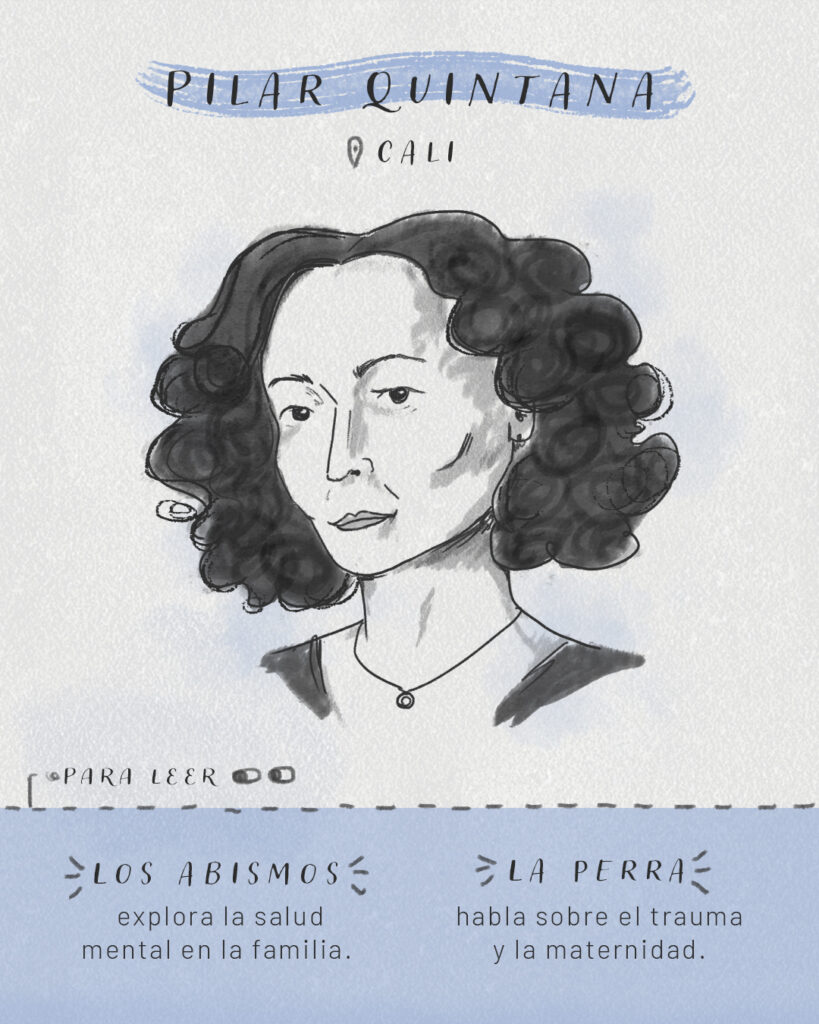 PILAR QUINTANA
CALI
PARA LEER
LOS ABISMOS
explora la salud
mental en la familia.
LA PERRA
habla sobre el trauma
y la maternidad.